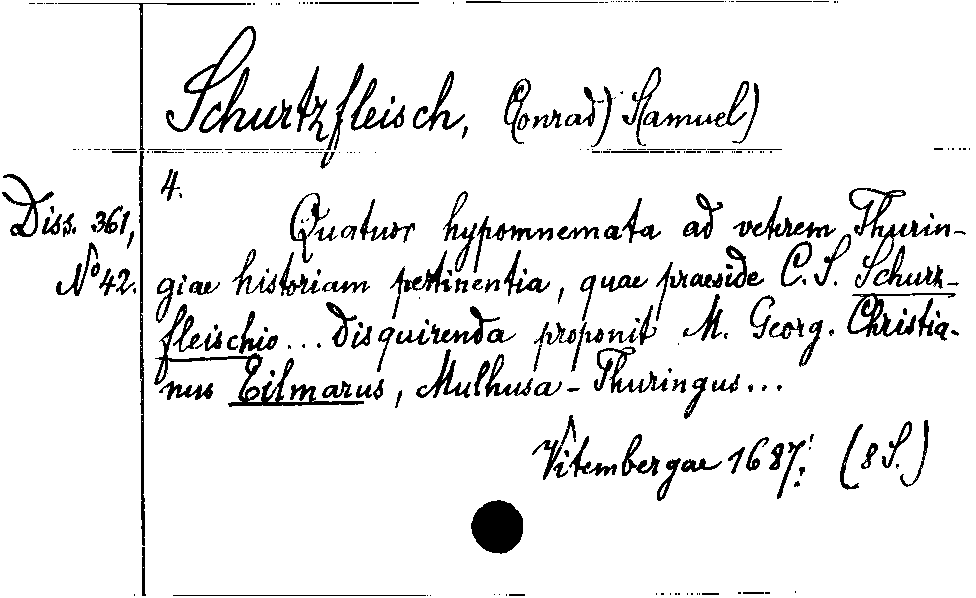 Schurtzfleisch, Conrad) Samuel)
4.
Diss. 361,
Quatuor hypomnemata ad veterem Thurin-
No 42.
giae historiam pertinentia, quae praeside C. S. Schurz-
fleischio... disquirenda proponit M. Georg. Christia-
nus Eilmarus, Mulhusa-Thuringus...
Vitembergae 1687. (8 S.)